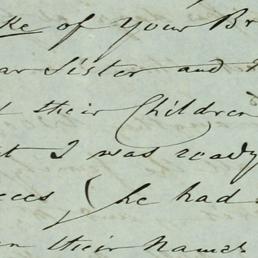 of your Br
Sister and
their Children
I was ready
(he had
their Names